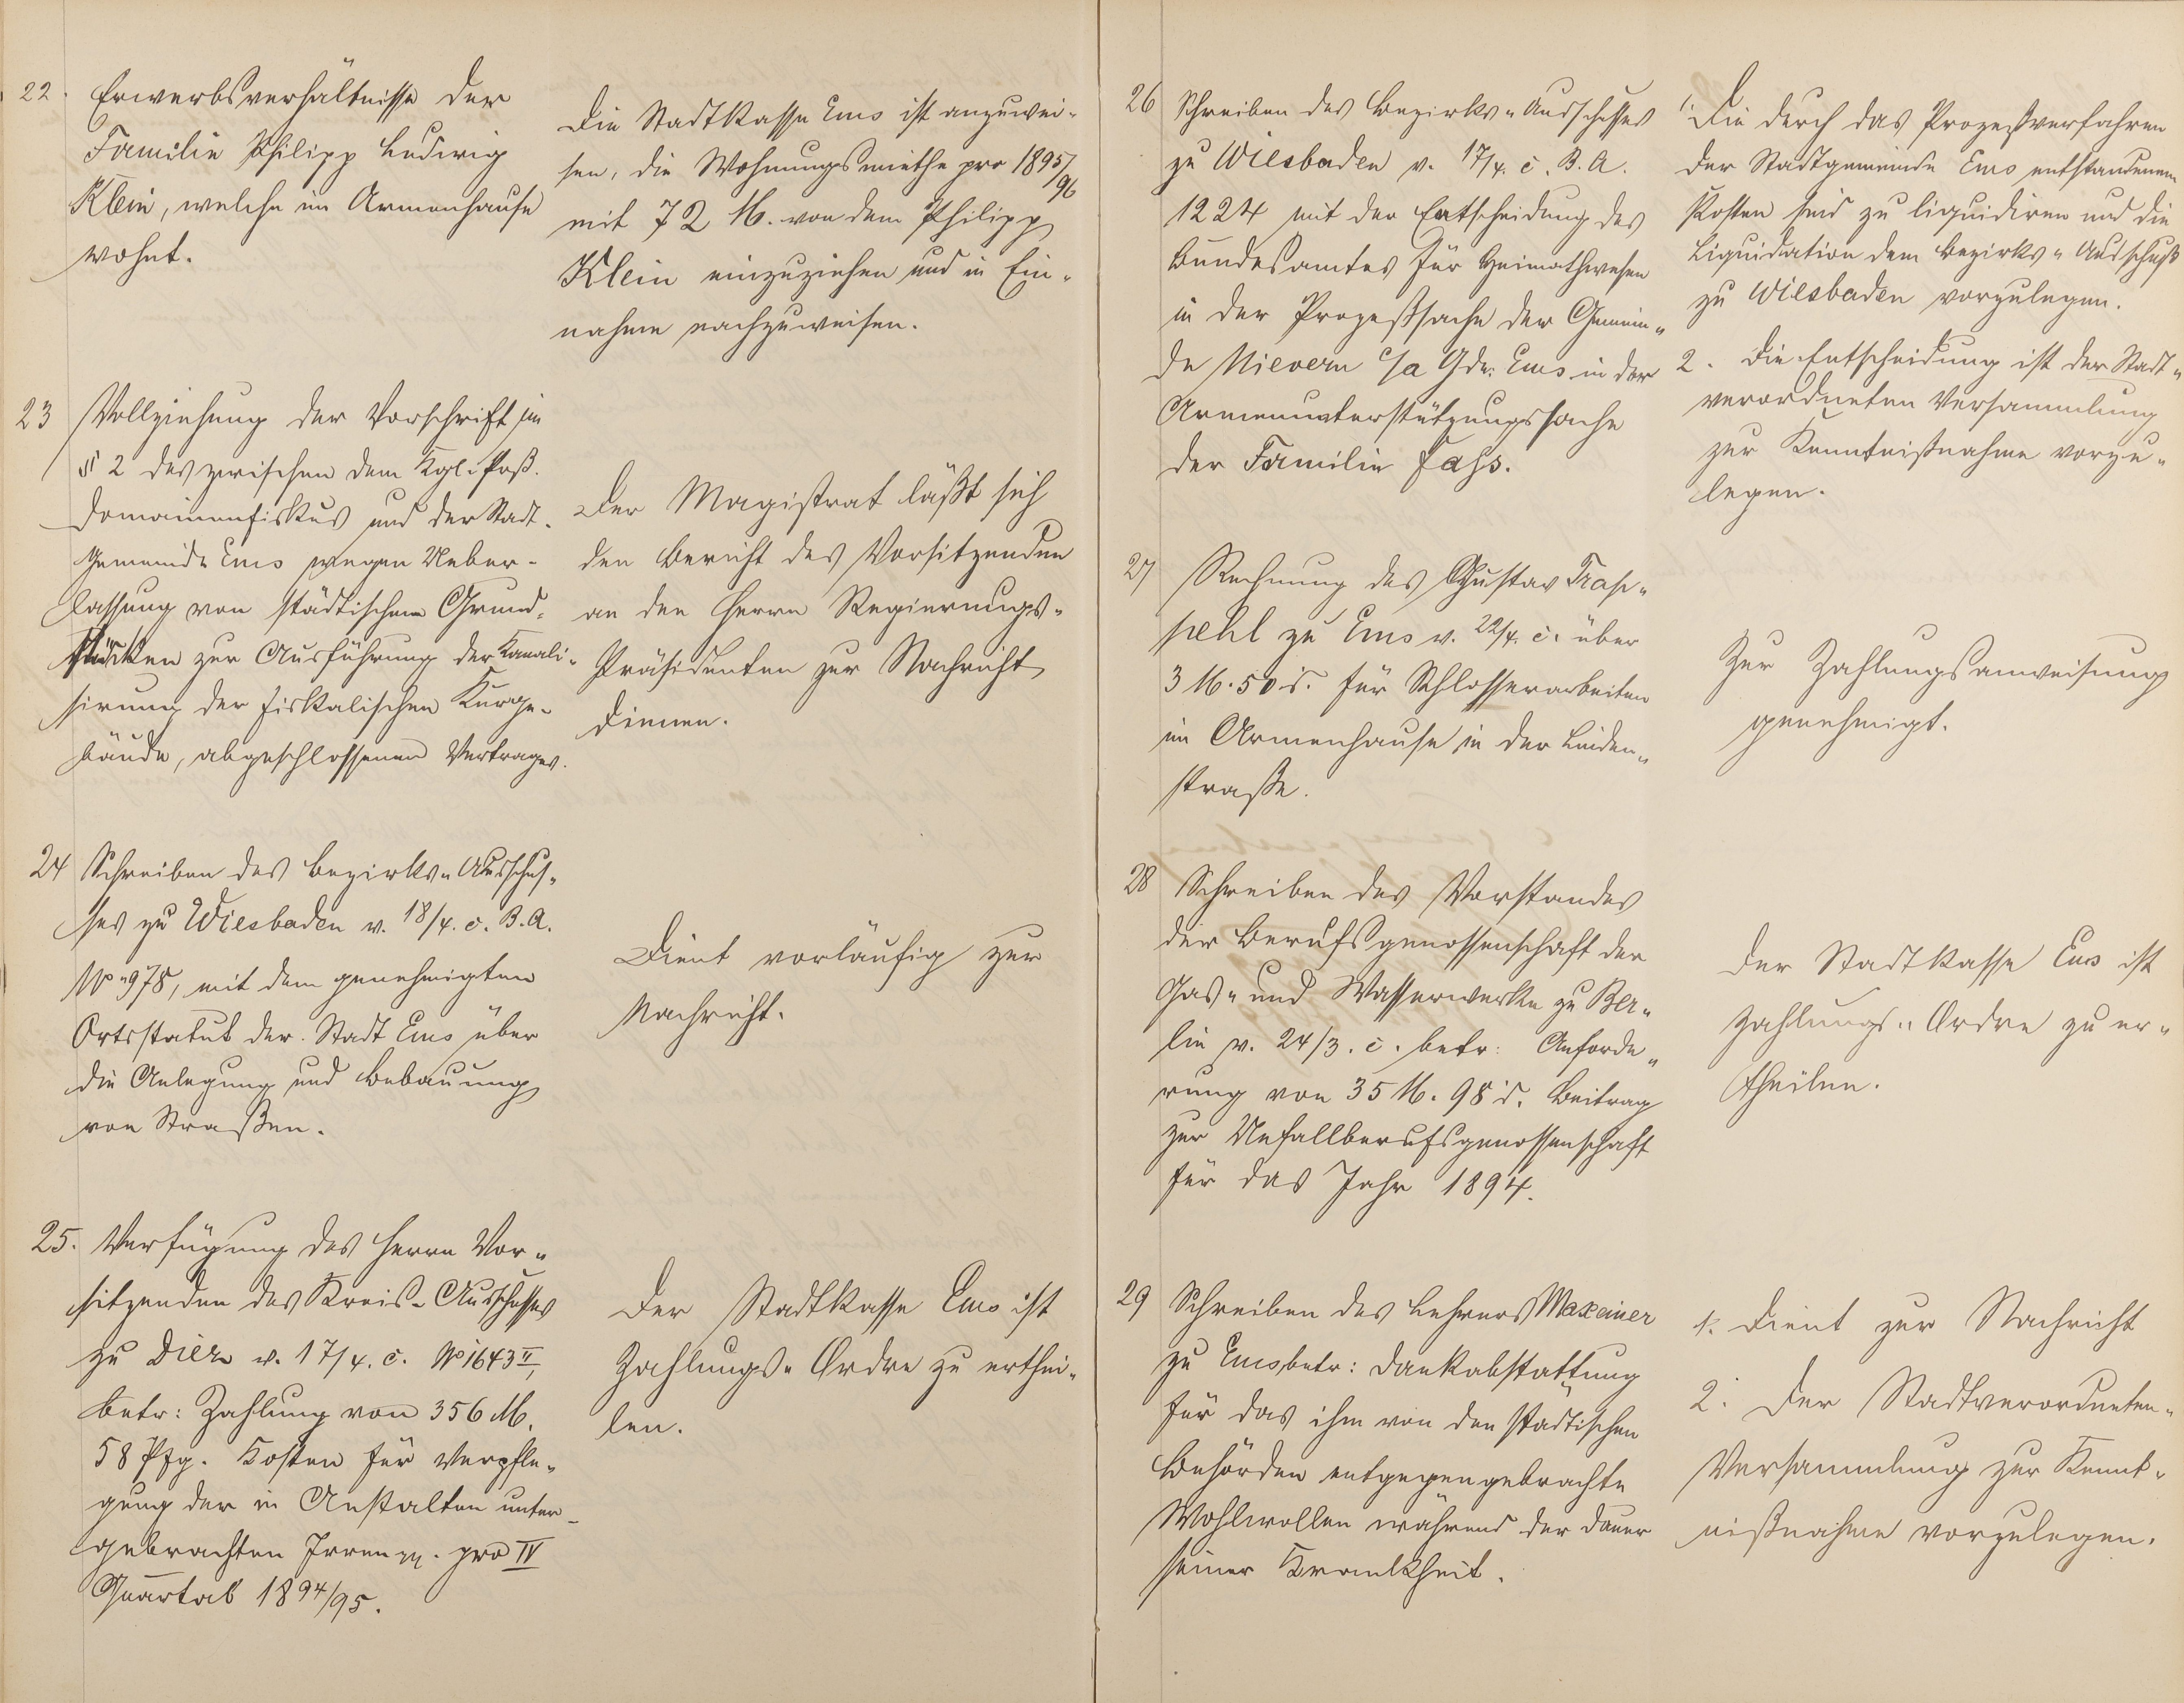 22. Erwerbsverhältnisse der
Familie Philipp Ludwig
Klein, welche im Armenhause
wohnt.
Die Stadtkasse Ems ist anzuwei-
sen, die Wohnungsmiethe pro 1895/96
mit 72 M. von dem Philipp
Klein einzuziehen und in Ein-
nahme nachzuweisen.
23 Vollziehung der Vorschrift im
§ 2 des zwischen dem Kgl.
Domainenfiskus und der Stadt-
gemeinde Ems wegen Ueber-
lassung von städtischem Grund-
stücken zur Ausführung der Kanali-
sirung der fiskalischen Kurge-
bäude, abgeschlossenen Vertrages.
Der Magistrat läßt sich
den Bericht des Vorsitzenden
an den Herrn Regierungs-
Präsidenten zur Nachricht
dienen.
24 Schreiben des Bezirks-Ausschus-
ses zu Wiesbaden v. 18/4. c. B.A.
No 978, mit dem genehmigten
Ortsstatut der Stadt Ems über
die Anlegung und Bebauung
von Straßen.
Dient vorläufig zur
Nachricht.
25. Verfügung des Herrn Vor-
sitzenden des Kreis-Ausschusses
zu Diez v. 17/4. c. No 1643 II,
betr: Zahlung von 356 M.
58 Pfg. Kosten für Verpfle-
gung der in Anstalten unter-
gebrachten Irren pp. pro IV
Quartal 1894/95.
Der Stadtkasse Ems ist
Zahlungs-Ordre zu erthei-
len.
26 Schreiben des Bezirks-Ausschusses
zu Wiesbaden v. 17/4. c. B.A.
1224 mit der Entscheidung des
Bundesamtes für Heimathwesen
in der Prozeßsache der Gemein-
de Nievern c/a Gde. Ems in der
Armenunterstützungssache
der Familie Fass.
1. Die durch das Prozeßverfahren
der Stadtgemeinde Ems entstandenen
Kosten sind zu liquidiren und die
Liquidation dem Bezirks-Ausschuß
zu Wiesbaden vorzulegen.
2. Die Entscheidung ist der Stadt-
verordneten Versammlung
zur Kenntnißnahme vorzu-
legen.
27 Rechnung des Gustav
zu Ems v. 22/4. c. über
3 M. 50 d. für Schlosserarbeiten
im Armenhause in der Linden-
straße.
Zur Zahlungsanweisung
genehmigt.
28 Schreiben des Vorstandes
der Berufsgenossenschaft der
Gas- und Wasserwerke zu Ber-
lin v. 24/3. c. betr: Anforde-
rung von 35 M. 98 d. Beitrag
zur Unfallberufsgenossenschaft
für das Jahr 1894.
Der Stadtkasse Ems ist
Zahlungs-Ordre zu er-
theilen.
29 Schreiben des Lehrers Maxeiner
zu Ems, betr: Dankabstattung
für das ihm von den städtischen
Behörden entgegengebrachte
Wohlwollen während der Dauer
seiner Krankheit.
1. Dient zur Nachricht
2. Der Stadtverordneten-
Versammlung zur Kennt-
nißnahme vorzulegen.